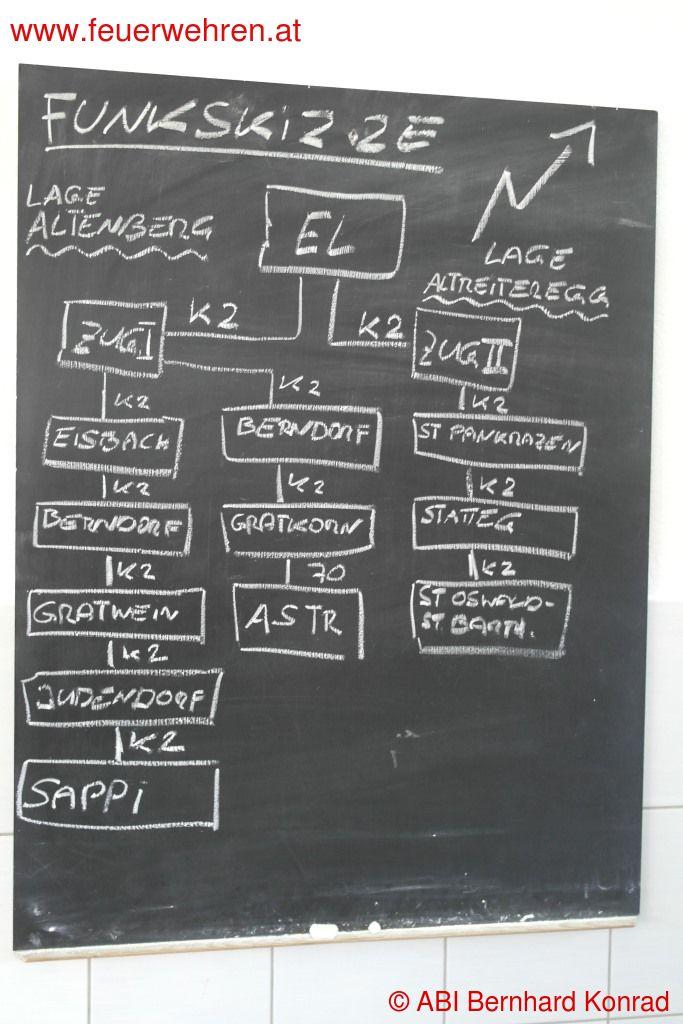 www.feuerwehren.at
FUNKSKIZZE
LAGE
ALTENBERG
EL
LAGE
ALTREITEREGG
K2
K2
ZUG I
ZUG II
K2
K2
K2
EISBACH
BERNDORF
ST PANKRAZEN
K2
K2
K2
BERNDORF
GRATKORN
STATTEG
K2
70
K2
GRATWEIN
ASTR
ST OSWALD-
ST. BARTH.
K2
JUDENDORF
K2
SAPPI
© ABI Bernhard Konrad